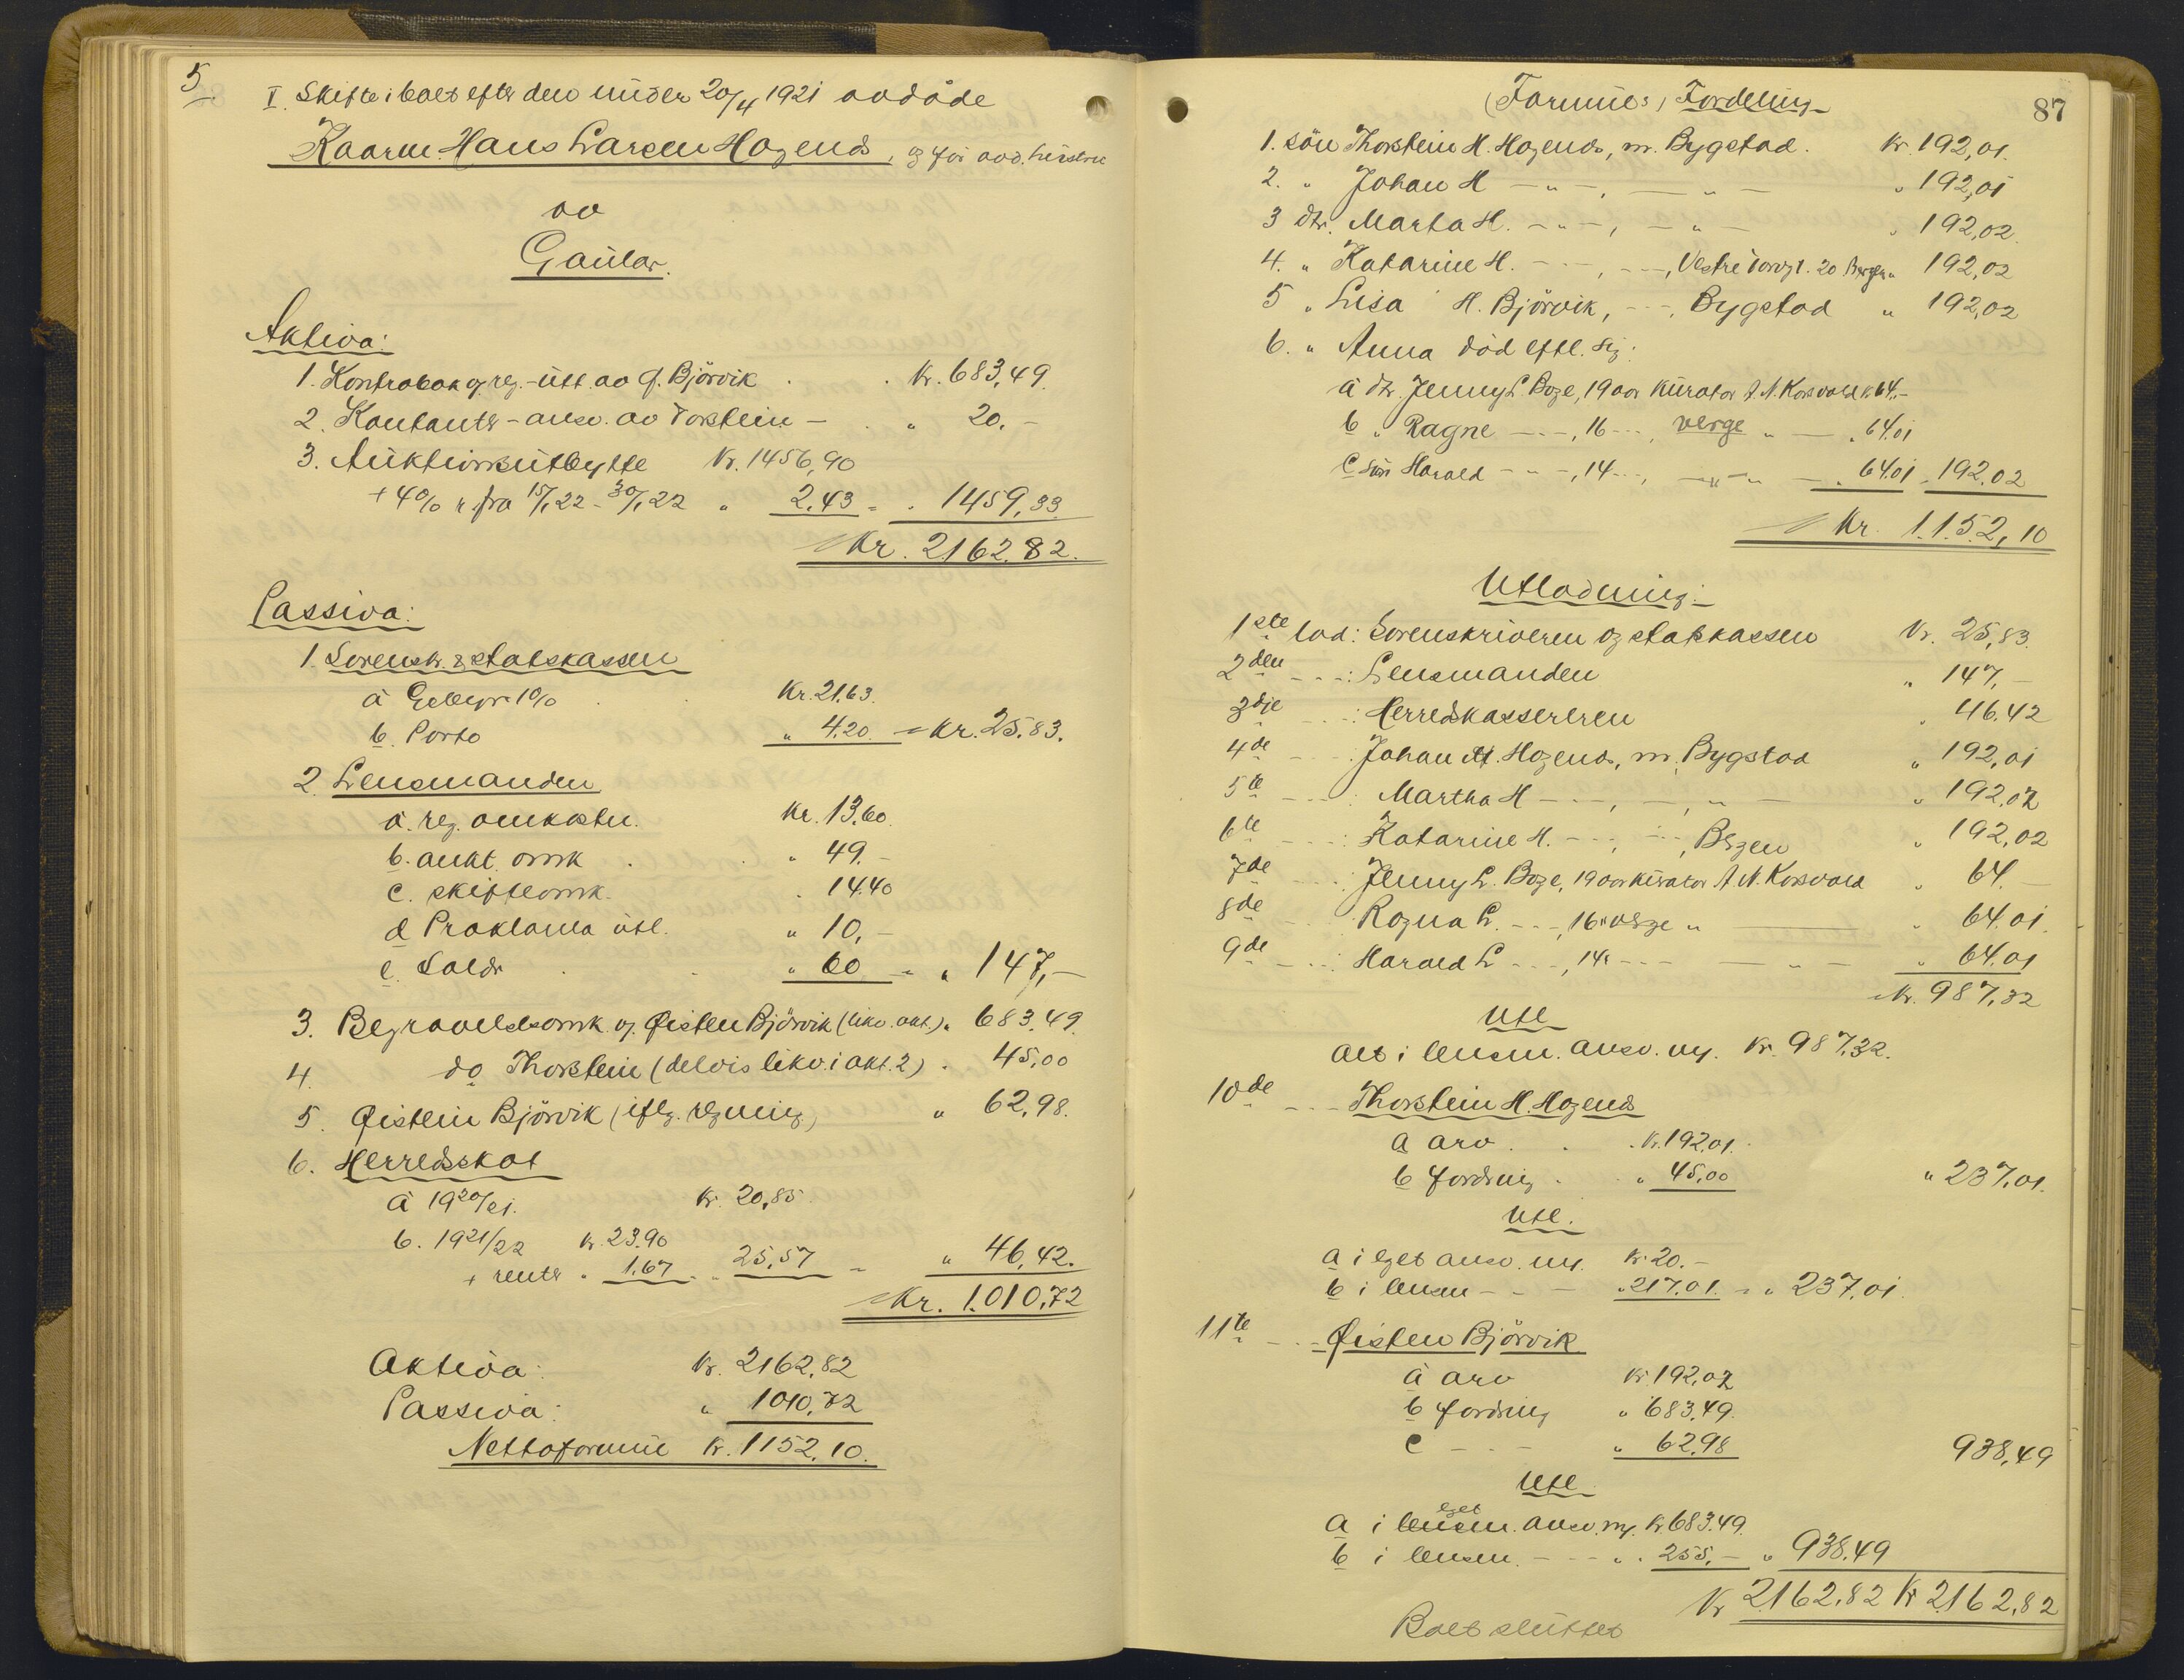 5
I. Skifte i boet efter den under 20/4 1921 avdöde
Kaarm. Hans Larsen Hogends, og før avd. hustru
av
Gaular.
Aktiva:
1. Kontrabok og reg. - utt. av Ø. Björvik . . Kr. 683,49.
2. Kontanter - ansv. av Torstein - . " 20.-
3. Auktionsutbytte Kr. 1456,90
+ 4% r. fra 15/1 22 - 30/1 22 " 2,43 = " 1459,33
Kr. 2162.82.
Passiva:
1. Sorenskr. & statskassen
a Gebyr 1% . . Kr. 21.63.
b. Porto " 4.20. = Kr. 25.83.
2. Lensmanden
a. reg. omkostn. Kr. 13.60.
b. aukt. omk . . " 49.-
c. skifteomk. . 14.40
d Proklama utl. " 10,-
e. Saldr . . " 60 = " 147,-
3. Begravelsesomk. v. Øisten Björvik (likv. akt.) " 683.49.
4. do Thorstein (delvis likv. i akt. 2) . 45,00
5. Øistein Björvik (iflg. regning) " 62,98.
6. Herredsskat
a 1920/21. Kr. 20,85.
b. 1921/22 Kr. 23.90
+ renter " 1.67 = " 25,57 = " 46,42.
Kr. 1.010,72
Aktiva: Kr. 2162,82
Passiva: " 1010,72
Nettoformue Kr. 1152,10.
87
(Formues) Fordeling
1. sön Thorstein H. Hogends, m. Bygstad. Kr. 192,01.
2. " Johan H - " - , - " - " 192,01
3 dtr. Marta H. - " - , - " - " 192,02.
4. " Katarine H. - - , - - , Vestre Torvgt. 20 Bergen " 192,02
5 " Lisa H. Björvik, - - , Bygstad " 192,02
6. " Anna död eftl. sig:
a dtr. Jenny L. Boge, 19 aar kurator A. N. Korsvold kr 64.-
b " Ragne - - - , 16 - - , verge " - " 64.01
c sön Harald - - - , 14 - - , - " - " - " 64.01 " 192.02
Kr. 1.152,10
Utlodning:
1ste lod: Sorenskriveren og statskassen Kr. 25,83.
2den - - : Lensmanden " 147,-
3dje - - : Herredskassereren " 46.42
4de - - : Johan H. Hogends, m. Bygstad " 192,01
5te - - : Martha H - - , - , - " - " 192,02
6te - - : Katarine H. - - , - - , Bergen " 192,02
7de - - : Jenny L. Boge, 19 aar kurator A. N. Korsvold " 64.-
8de - - : Ragna L. - - , 16 " verge " - " 64.01.
9de - - : Harald L - - , 14 " - - - - " - " 64.01
Kr. 987,32
Utl
Alt i lensm. ansv. nr. Kr. 987.32.
10de - - Thorstein H. Hogends
a arv . . . Kr. 192.01.
b fordring . . " 45,00 " 237.01.
Utl.
a i eget ansv. nr. Kr. 20.-
b i lensm - - - " 217.01. = " 237.01.
11te - - Øisten Björvik
a arv Kr. 192,02
b fordring " 683,49.
c - - - " 62.98 938,49
Utl
eget
a i lensm. ansv. nr. Kr 683.49.
b i lensm. - - " . 255.- " 938.49
Kr 2162.82 Kr 2162,82
Boet sluttet